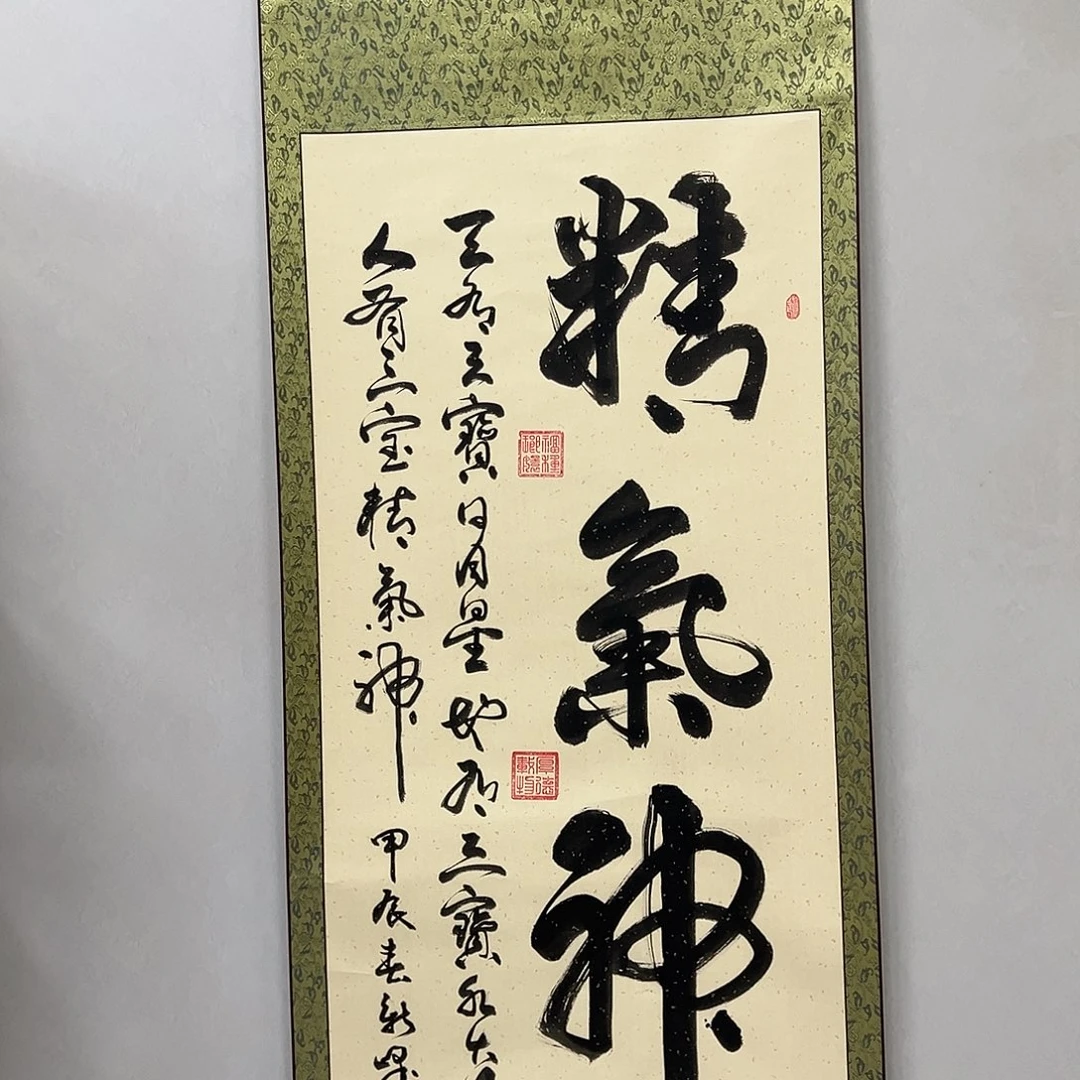 精氣神
天有三寶日月星地有三寶水火
人有三宝精氣神
甲辰春新
厚德載物